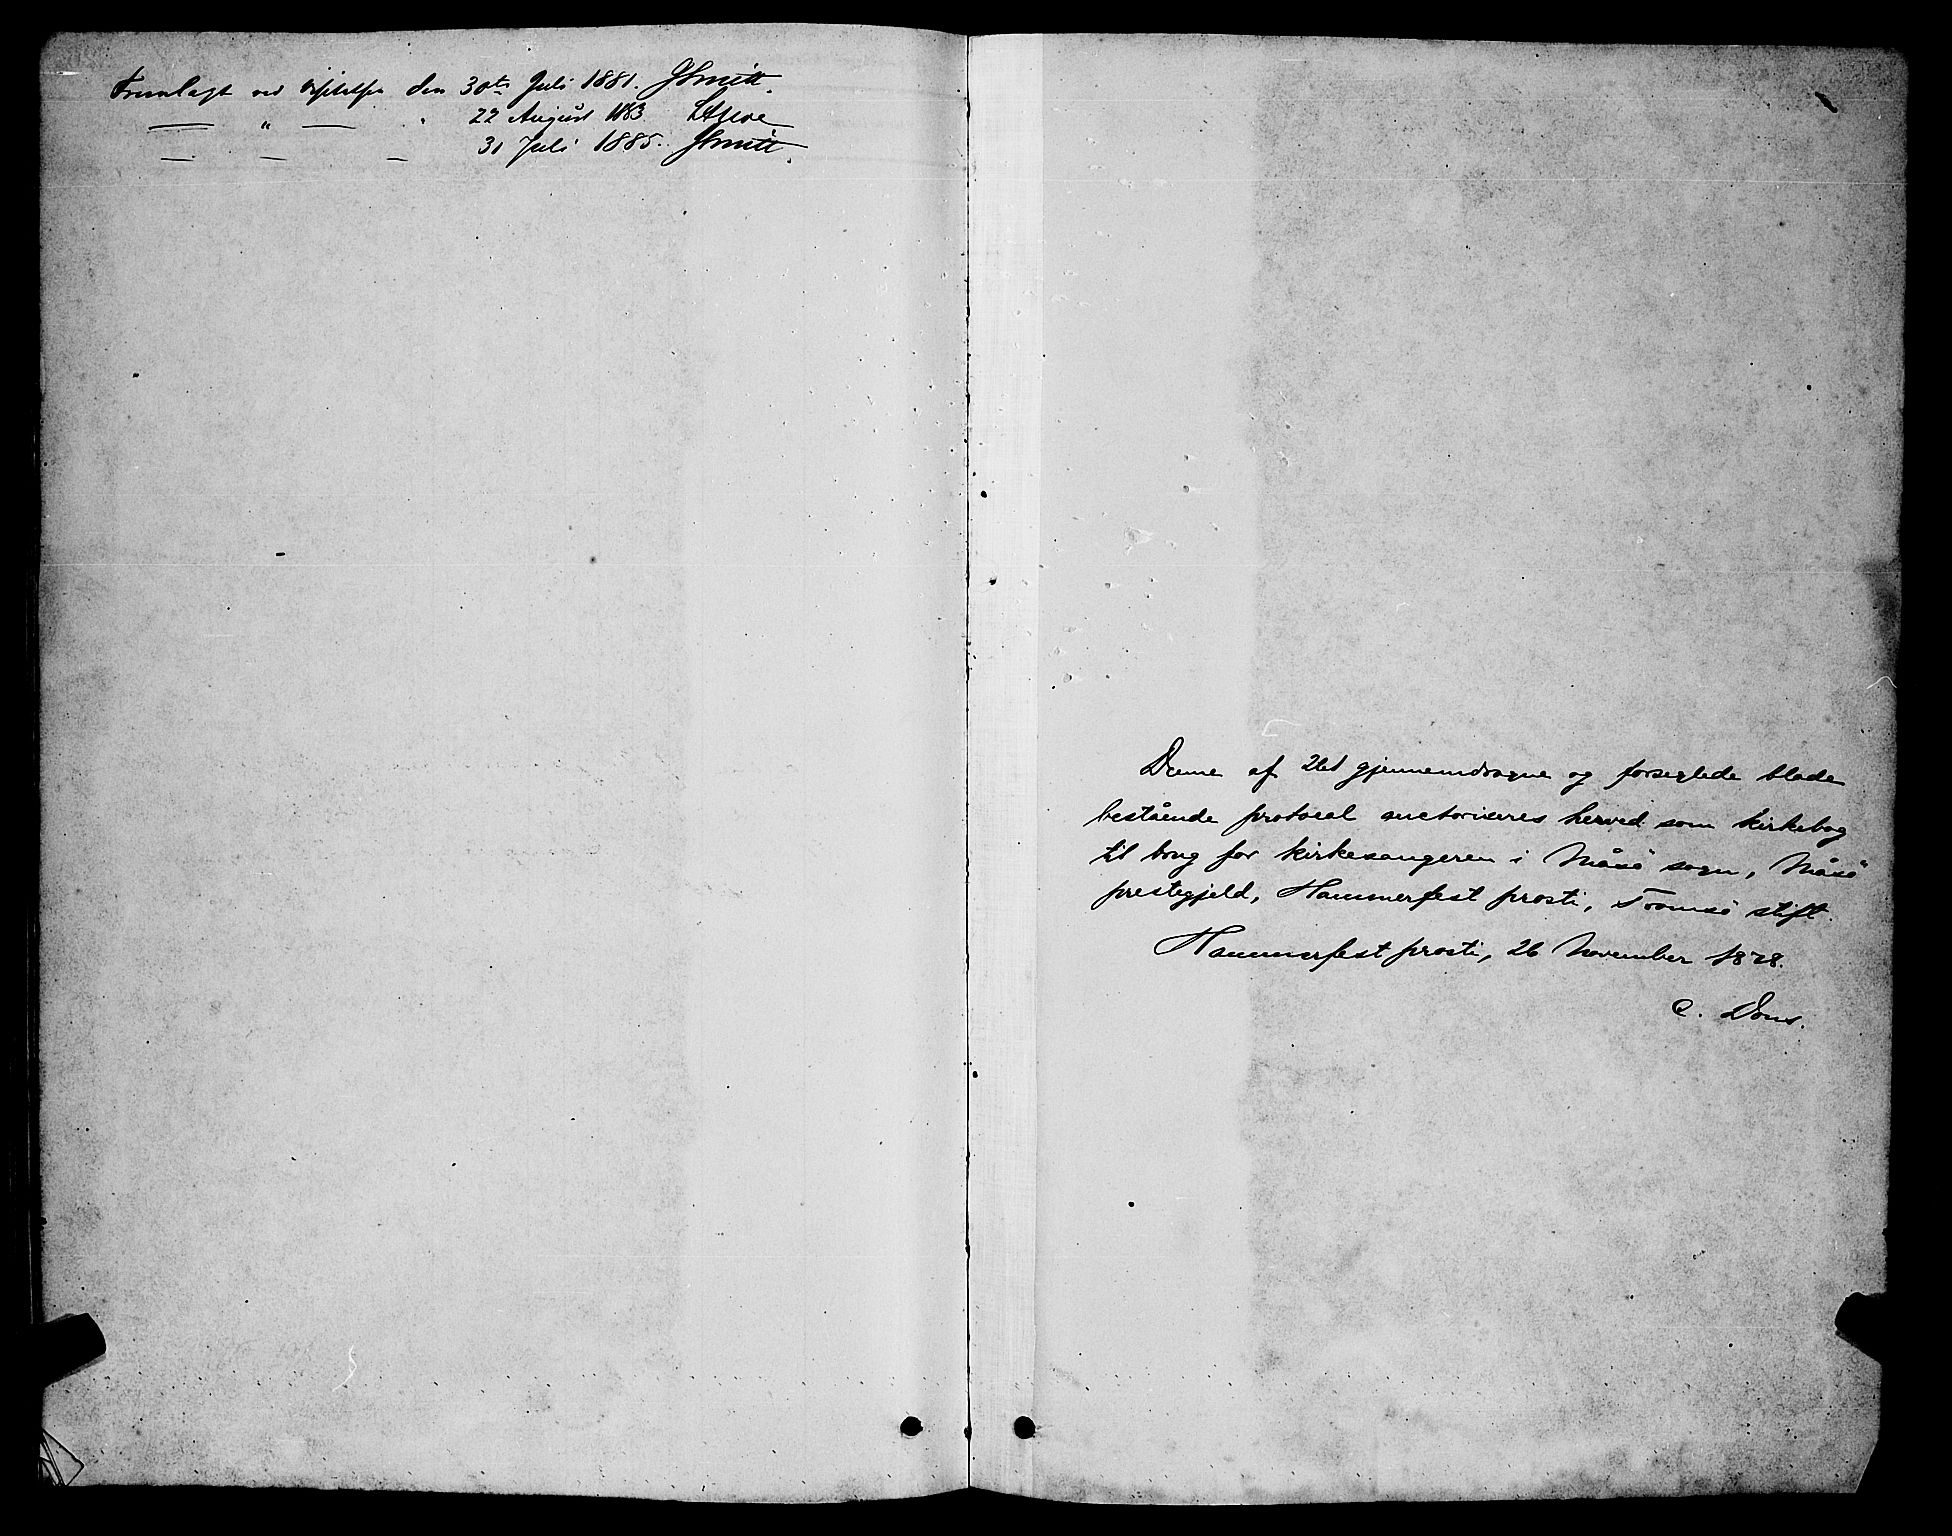 Fremlagt ved Visitatsen den 30te Juli 1881. JSmitt.
— " — " 22 August 1883
— — — 31 Juli 1885. JSmitt.
Denne af gjennemdragne og forseglede blade
bestående protocol auctoriseres herved som kirkebog
til brug for kirkesangeren i Måsö sogn, Måsö
prestegjeld, Hammerfest prosti, Tromsö stift.
Hammerfest prosti, 26 November 1878.
C. Dons.